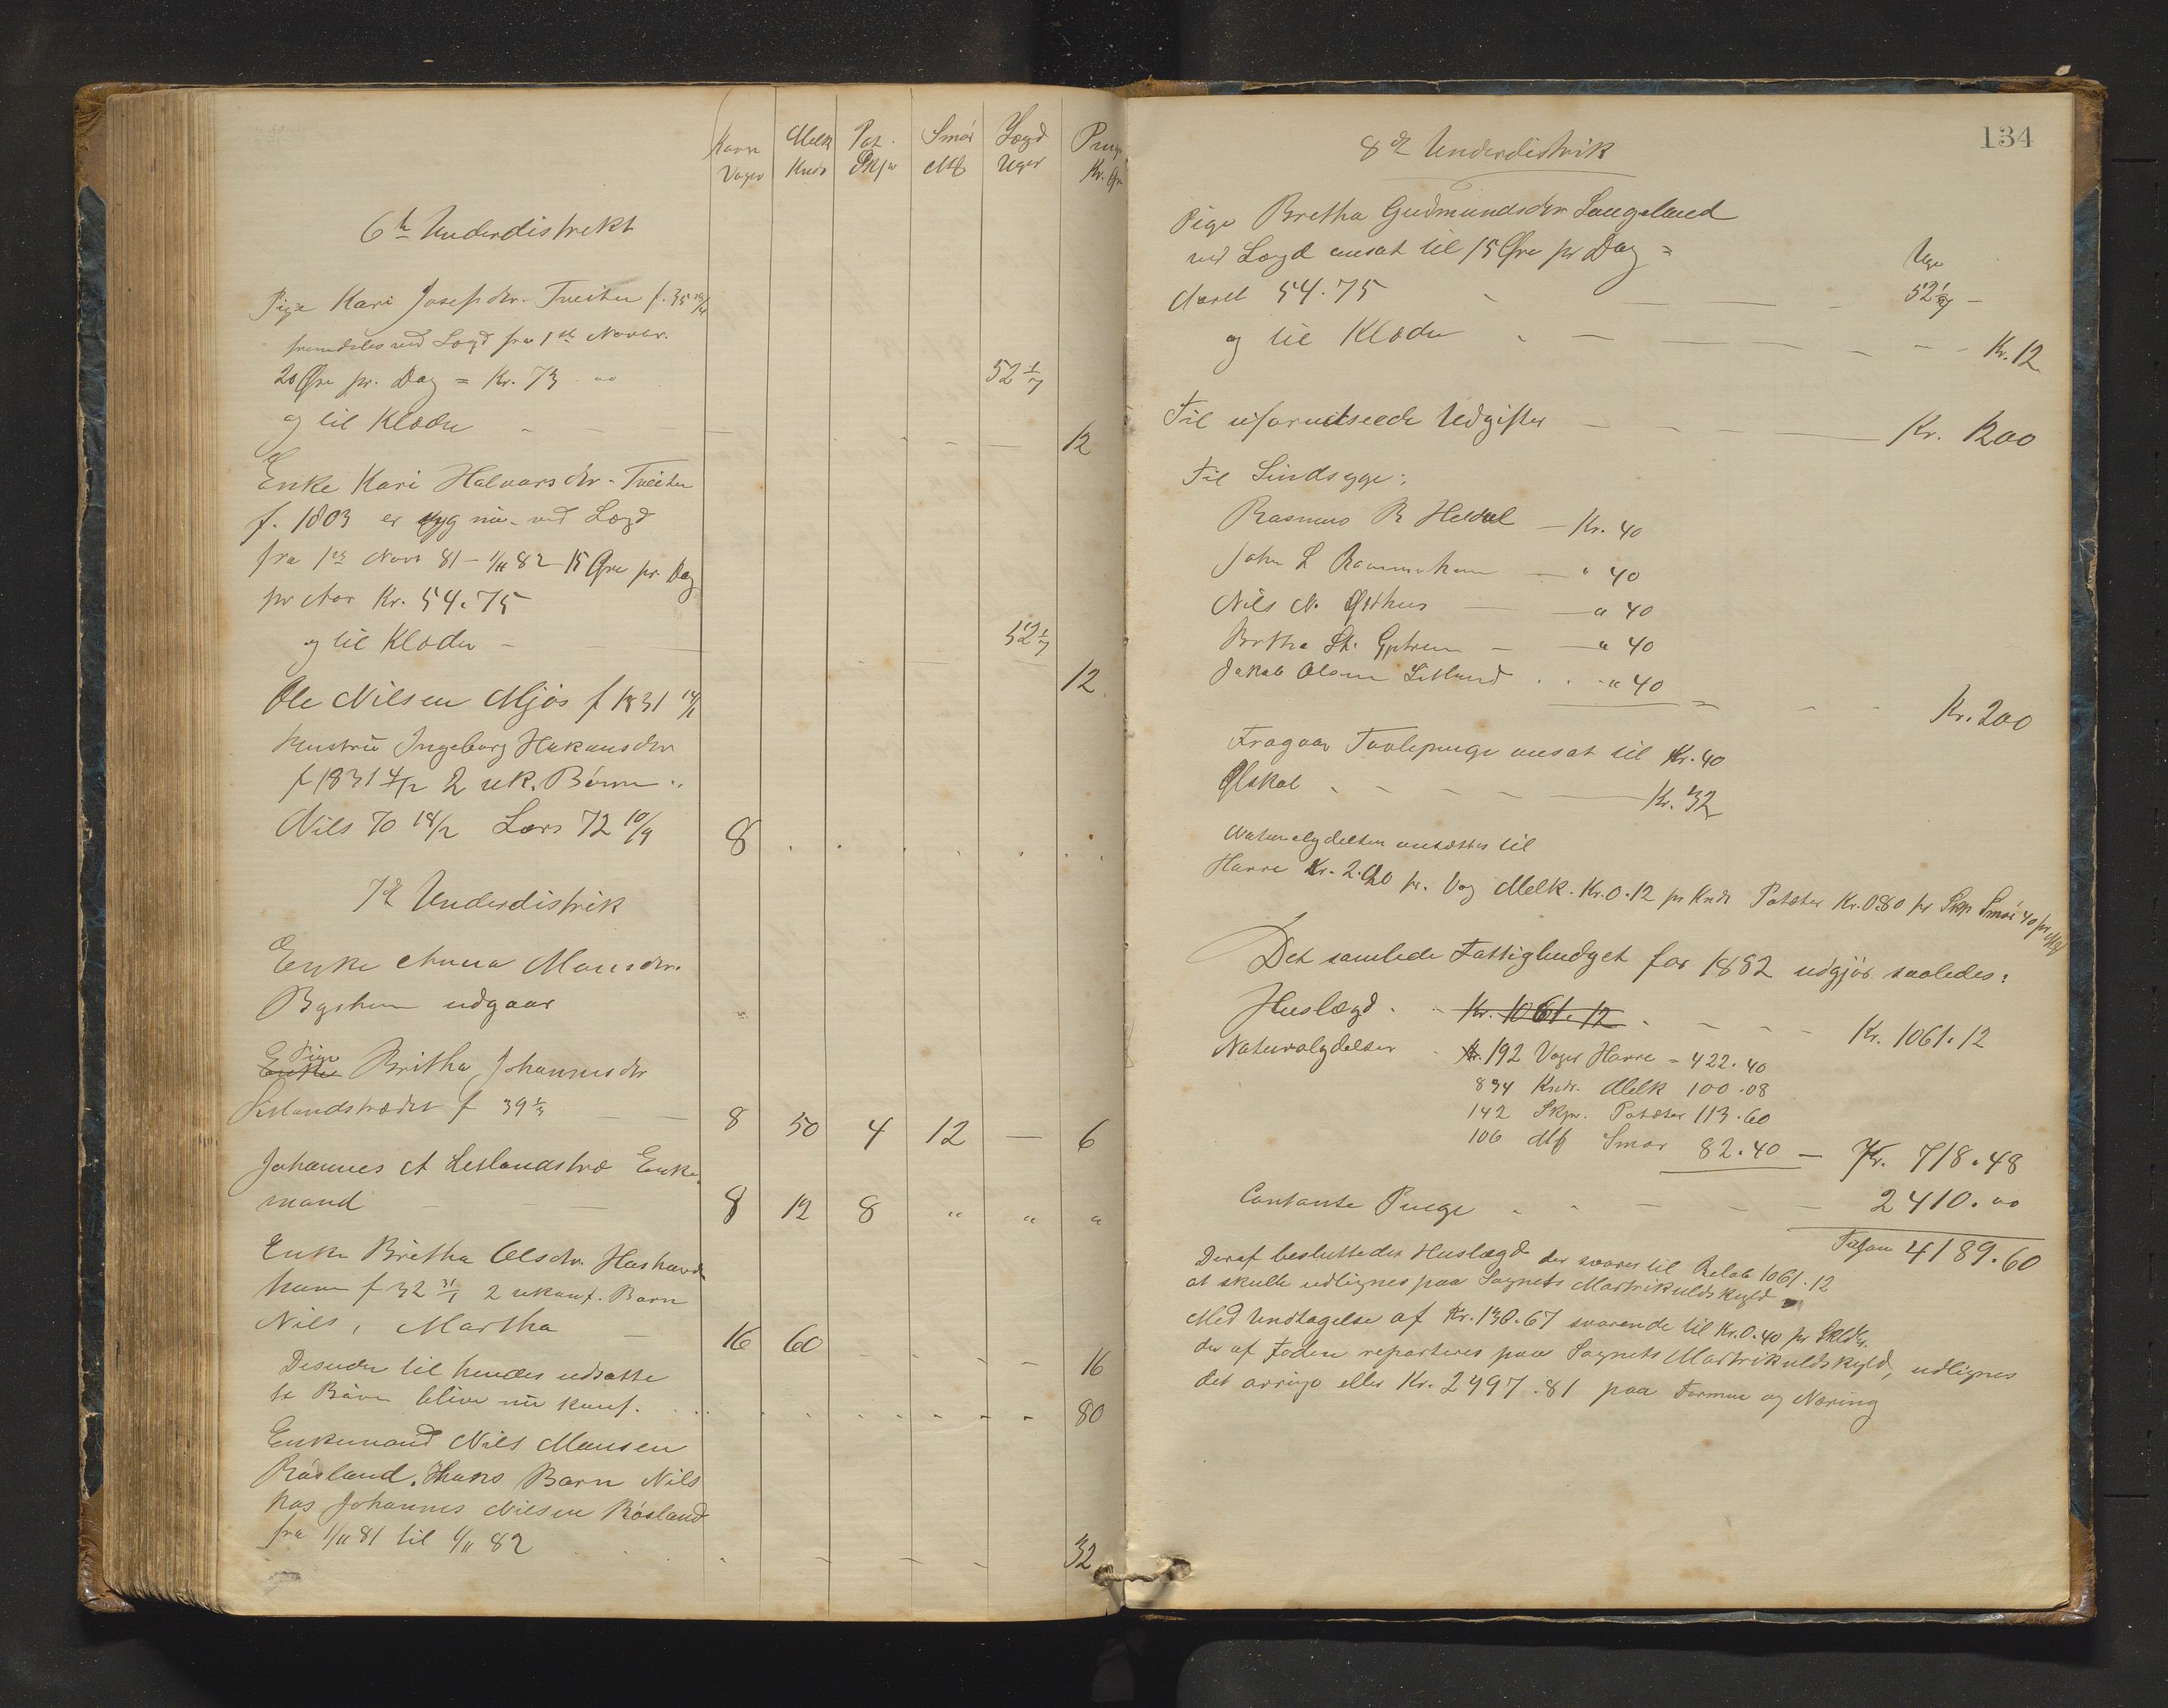 Havre Melk Pot. Smør Lægd Penge
Vager Kndr Skjp Mk Uger Kr. Øre
6te Underdistrikt
Pige Kari Josefsdtr. Tveiten f. 35
fremdeles ved Lægd fra 1ste Novbr.
20 Øre pr. Dag = Kr. 73 00 52 1/7
og til Klæder - - - 12
Enke Kari Halvorsdtr. Tveiten
f. 1803 er syg nu. ved Lægd
fra 1ste Novb 81 - 1/11 82 15 Øre pr. Dag
pr Aar Kr. 54.75
og til Klæder - 52 1/7 12
Ole Nilsen Mjøs f 1831 14/1
Hustru Ingeborg Hakonsdtr
f 1831 4/12 2 uk. Børn :
Nils 70 18/12 Lars 72 10/9 8
7de Underdistrik
Enke Anna Monsdtr.
udgaar
Pige
Enke Britha Johannesdtr
f 39 1/3 8 50 4 12 — 6
Johannes A Leslandstræ Enke-
mand - - - 8 12 8 " " "
Enke Britha Olsdtr.
f 32 31/1 2 ukonf. Barn
Nils, Martha - 16 60 16
Desuden til hendes udsatte
Børn bliver nu konf. 80
Enkemand Nils Monsen
Røsland. Hans Barn Nils
hos Johannes Nilsen Røsland
fra 1/11 81 til 1/11 82 32
134
8de Underdistrik
Pige Bretha Gudmundsdtr Langeland
ved Lægd ansat til 15 Øre pr Dag = Uge
Aaret 54.75 - - 52 1/7 -
og til Klæder - - - Kr. 12
Til uforudseede Udgifter - - - Kr. 200
Til Sindsyge:
Rasmus R Heldal — Kr. 40
John L — " 40
Nils N. Østhus — " 40
Bretha — " 40
Jakob Olsen Litland . . " 40
= - - Kr. 200
Fragaar Tavlepenge ansat til Kr. 40
Ølskat - - - Kr. 32
Naturalydelsen ansættes til
Havre Kr. 2.20 pr. Vog Melk. Kr. 0.12 pr Knde Poteter Kr. 0.80 pr Skp Smør 40 pr Mk
Det samlede Fattigbudget for 1882 udgjør saaledes:
Huslægd . - Kr. 1061.12 . - - - Kr. 1061.12
Naturalydelser . Kr. 192 Voger Havre = 422.40
834 Knde. Melk 100.08
142 Skpr. Potæter 113.60
106 Mk Smør 82.40 — Kr. 718.48
Contante Penge - - - 2410.00
Tilsam 4189.60
Deraf besluttedes Huslægd der svarer til Beløb 1061.12
at skulle udlignes paa Sognets Matrikulskyld.
Med Undtagelse af Kr. 130.67 svarende til Kr. 0.40 pr Skldkr.
der af Jorden reparteres paa Sognets Matrikulskyld, udlignes
det øvrige eller Kr. 2997.81 paa Formue og Næring